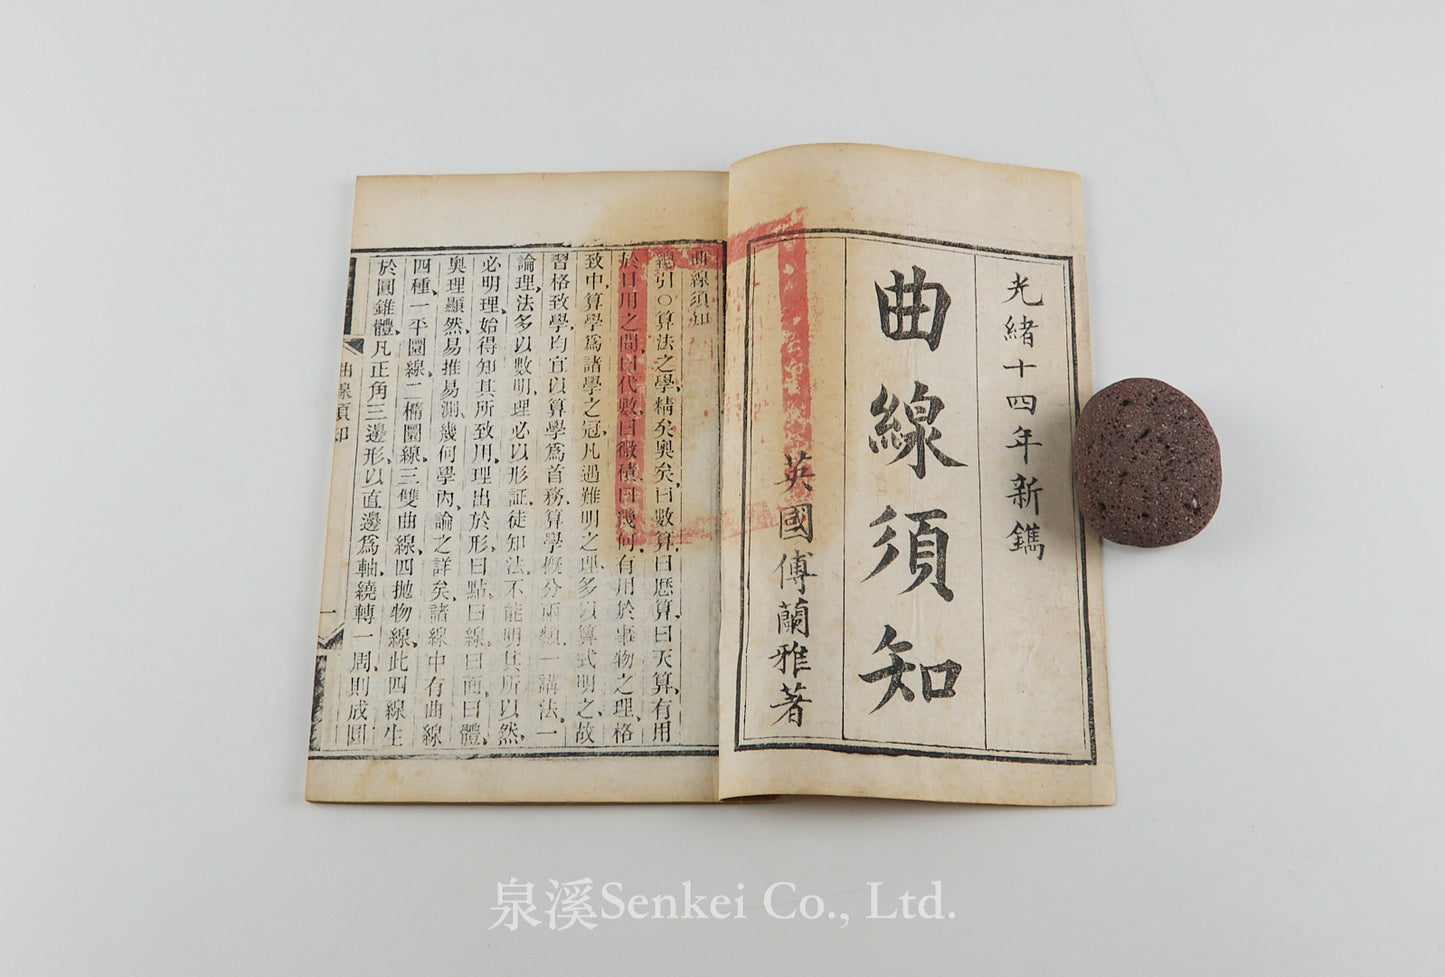 光緒十四年新鐫
曲線須知
英國傅蘭雅著
曲線須知
總引○算法之學精矣奧矣曰數算曰歷算曰天算有用
於日用之間曰代數曰微積曰幾何有用於事物之理格
致中算學爲諸學之冠凡遇難明之理多以算式明之故
習格致學均宜以算學爲首務算學概分兩類一講法一
論理法多以數明理必以形証徒知法不能明其所以然
必明理始得知其所致用理出於形曰點曰線曰面曰體
奧理顯然易推易測幾何學內論之詳矣諸線中有曲線
四種一平圜線二橢圜線三雙曲線四拋物線此四線生
於圓錐體凡正角三邊形以直邊爲軸繞轉一周則成圓
曲線須知
一
泉溪Senkei Co., Ltd.